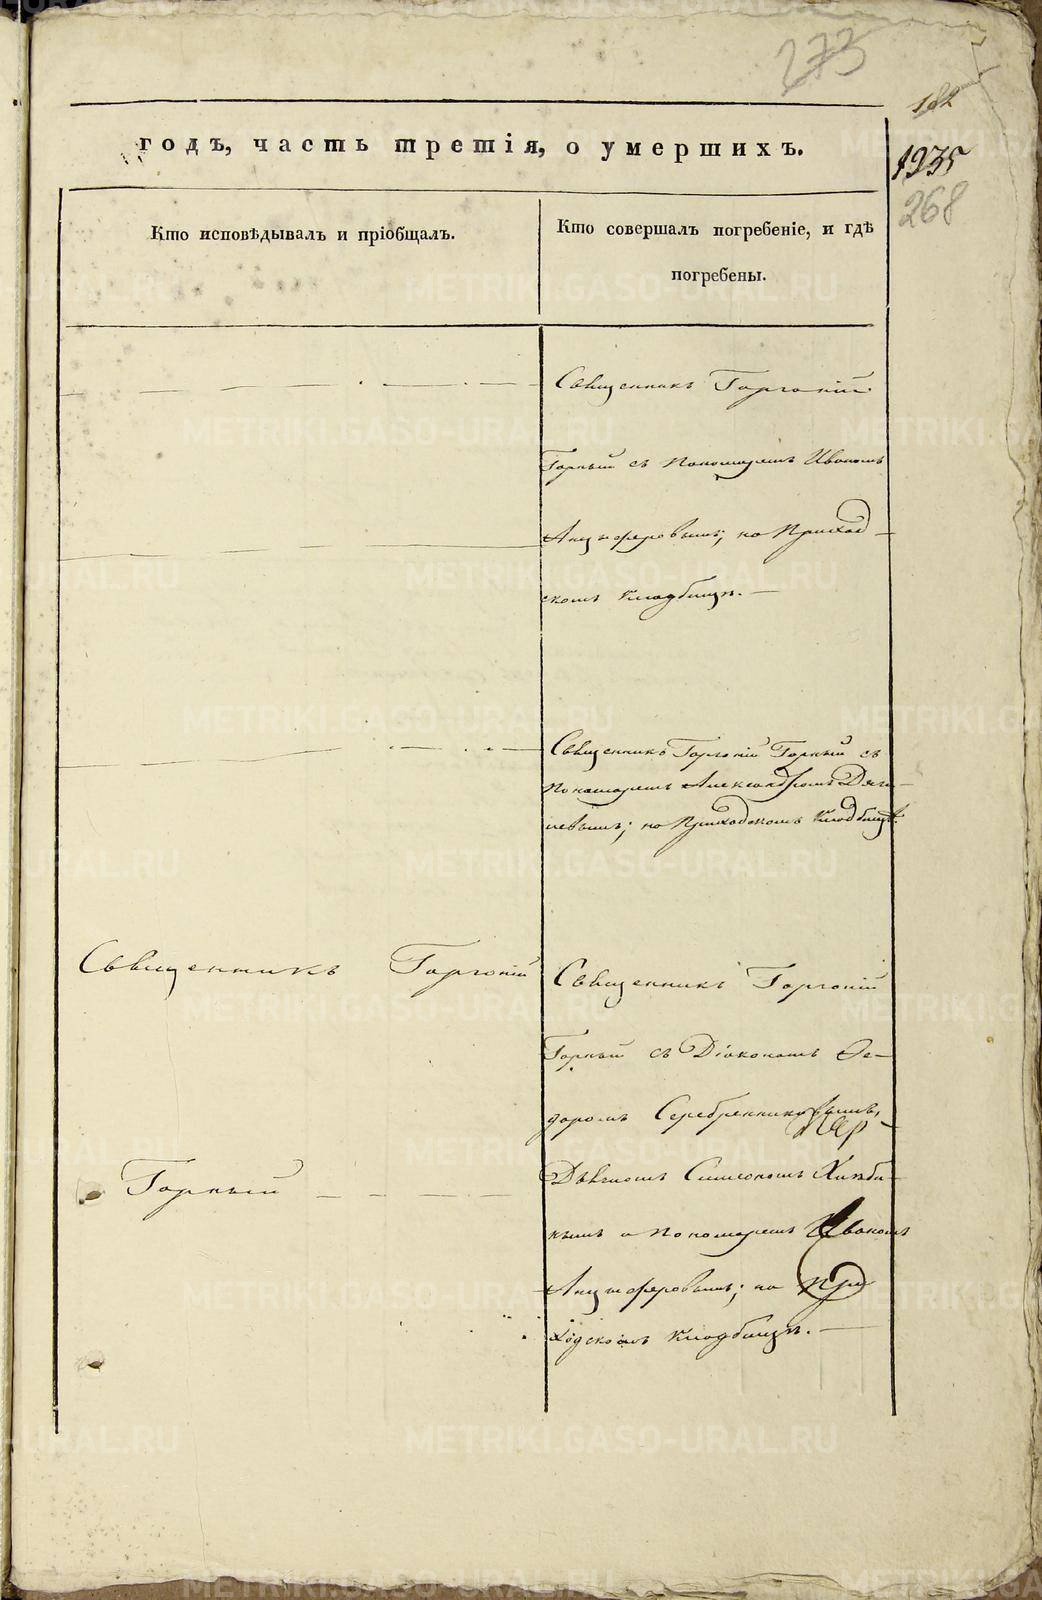 273
182
годъ, часть третія, о умершихъ.
1235
268
Кто исповѣдывалъ и пріобщалъ.
Кто совершалъ погребеніе, и гдѣ
погребены.
Священникъ Горгоній
Горный съ Пономаремъ Иваномъ
Анцыферовымъ, на Приход-
скомъ кладбищѣ.
Священникъ Горгоній Горный съ
Пономаремъ Александромъ
на Приходскомъ кладбищѣ.
Священникъ Горгоній
Горный
Священникъ Горгоній
Горный съ Діакономъ Ѳе-
доромъ Серебренниковымъ,
Симеономъ
и Пономаремъ Иваномъ
Анцыферовымъ; на При
ходскомъ кладбищѣ.
METRIKI.GASO-URAL.RU